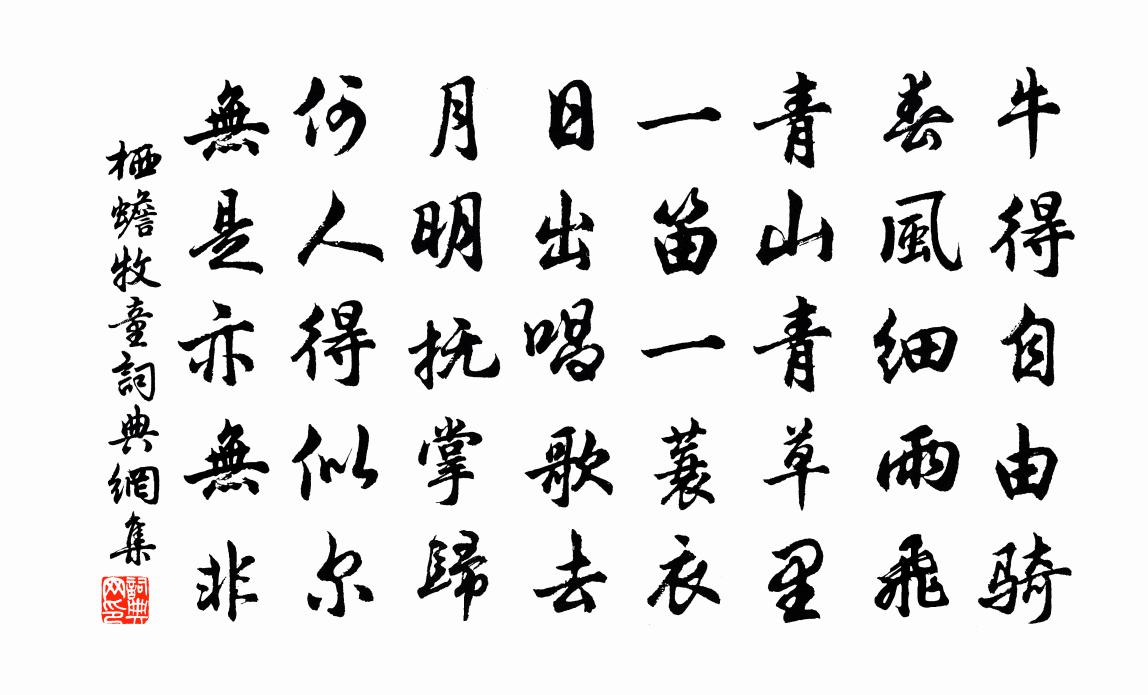 牛得自由骑
春風细雨飛
青山青草里
一笛一蓑衣
日出唱歌去
月明抚掌歸
何人得似尔
無是亦無非
栖蟾牧童詞典網集
詞典